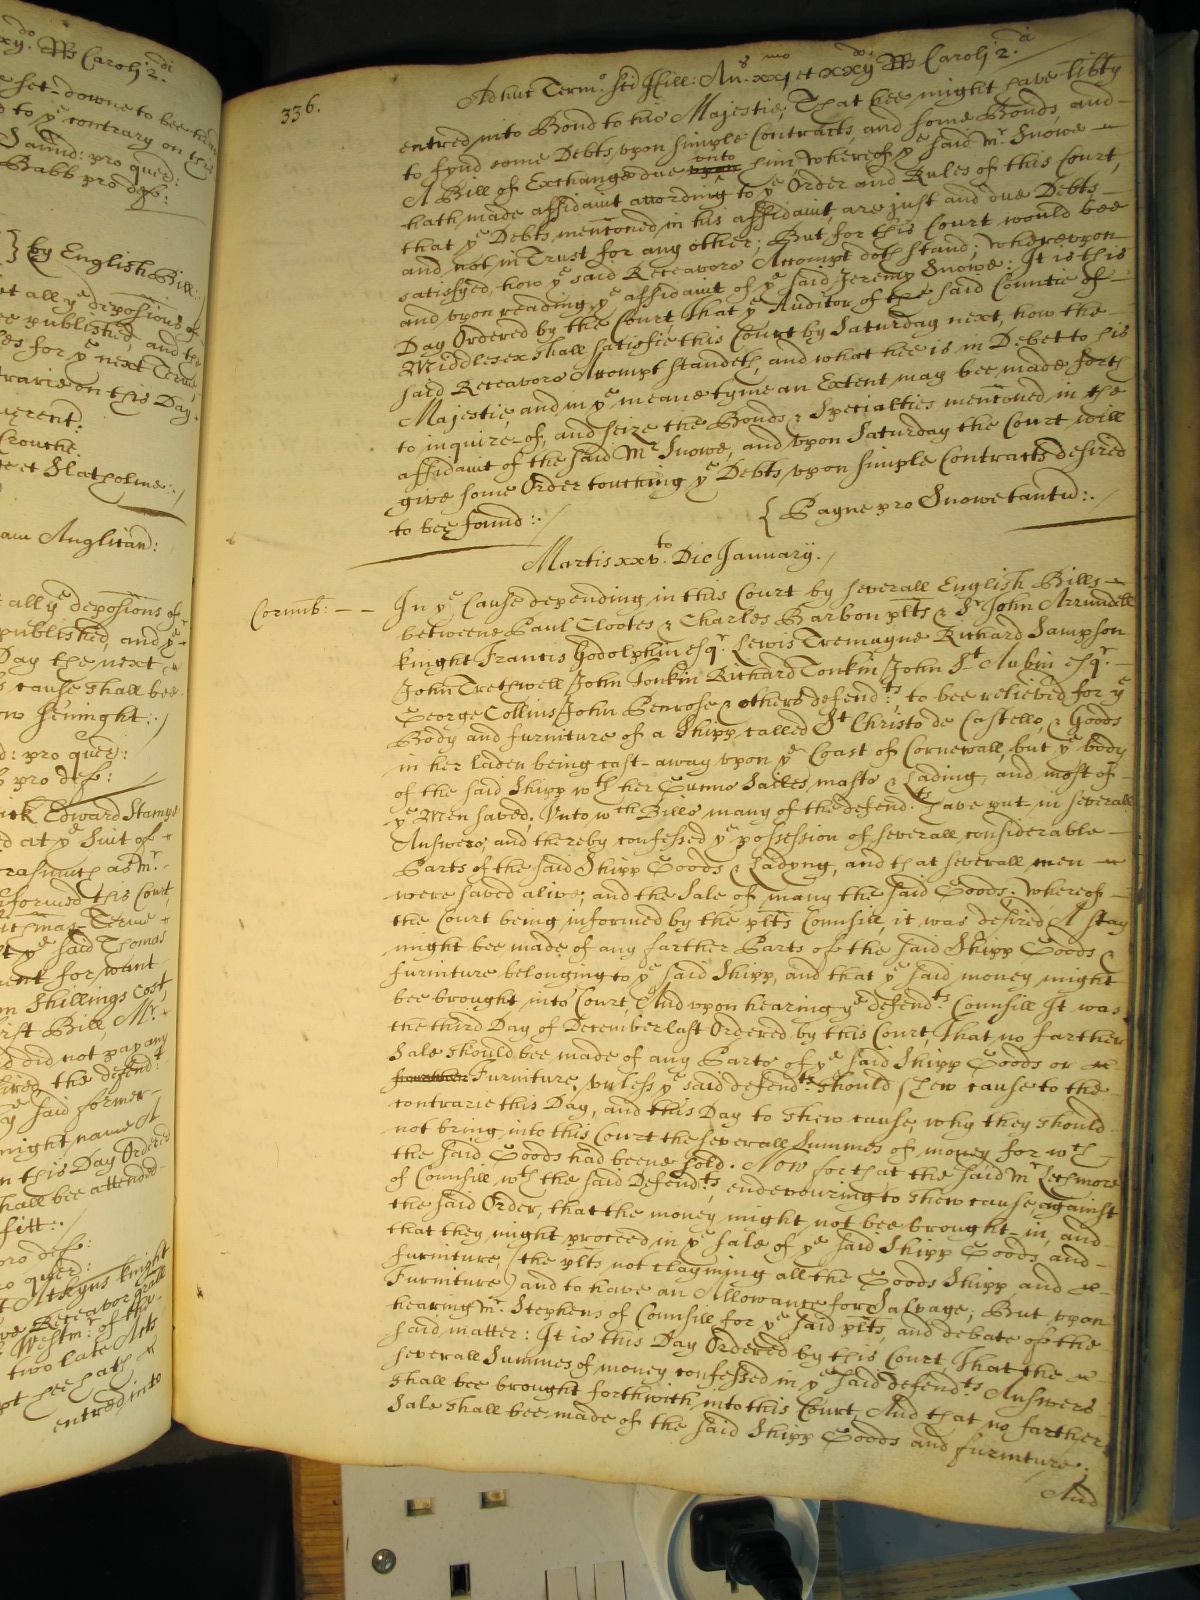 xxij.do RRs Caroli 2.di
e set-downe to bee
d to ye contrary on this
Saund: pro quer:
Babb pro def:
} by English Bill:
t all ye deposicions of
ee published, and
es for ye next Terme
trarie on this Day.
Crouche
te et Slatholme:
am Anglican:
t all ye deposicions of
published, and ye
Day the next
s cause shall bee
ow Senight:
d: pro quer:
pro def:
Edward Stamp
d at ye Suit of
as Mr
formed this Court
Terme
t ye said Thomas
ent for want
n Shillings Cost
irst Bill, Mr
d did not pay any
the defend:t
ye said former
might, name A
n this Day Ordered
shall bee attended
fitt:
pro def:
ro quer:
t Atkyns knight
ve Receavor Gen:all
Westm:r of the
two late Acts
pt hee hath
entred into
336.
Adhuc Term:o Sci Hill: An:o xxj.mo et xxij.do RRs Caroli 2.di
entred into Bond to his Majestie; That hee might have liberty
to fynd some Debts upon simple Contracts and some Bonds, and
A Bill of Exchange due upon unto him Whereof ye said Mr Snowe
hath made affidavit according to ye Order and Rules of this Court,
that ye Debts mencioned in his affidavit, are just and due Debts
and not in Trust for any other; But for this Court would bee
satisfyed, how ye said Receavors Accompt doth stand; Whereupon
and upon reading ye affidavit of ye said Jeremy Snowe: It is this
Day Ordered by the Court, That ye Auditor of the said Countie of
Middlesex shall satisfie this Court by Saturday next, how the
said Receavors Accompt standeth, and what hee is in Debet to his
Majestie, and in ye meane tyme an Extent may bee made forth
to inquire of, and seize the Bonds & Specialties mencioned in the
affidavit of the said Mr Snowe, and upon Saturday the Court will
give some Order touching ye Debts upon simple Contracts desired
to bee found:.
{ Payne pro Snowe tantu:.
Martis xxv.to Die January.
Cornub: - - In ye Cause depending in this Court by severall English Bills
betweene Paul Clootes & Charles Barbon plts & Sr John Arrundell
knight Francis Godolphin esqr. Lewis Tremayne Richard Sampson
John Trethwell John Tonkin Richard Tonkin John St Aubin esqr.
George Collins John Penrose & others defend:ts to bee relieved for ye
Body and furniture of a Shipp called St Christo de Castello, & Goods
in her laden being cast-away upon ye Coast of Cornewall, but ye body
of the said Shipp wth her Gunns Sailes masts & Lading, and most of
ye Men saved, Unto wch Bills many of the defend:ts have put in severall
Answers, and thereby confessed ye possession of severall considerable
Parts of the said Shipp Goods & Ladyng, and that severall men
were saved alive, and the Sale of many the said Goods; Whereof
the Court being informed by the plts Counsill, it was desired A stay
might bee made of any farther Parts of the said Shipp Goods &
furniture belonging to ye said Shipp, and that ye said money might
bee brought into Court, And upon hearing ye defend:ts Counsill It was
the third Day of December last Ordered by this Court, That no farther
Sale should bee made of any Parts of ye said Shipp Goods or
Furniture, unless ye said defend:ts should shew cause to the
contrarie this Day, and this Day to shew cause, why they should
not bring into this Court the severall Summes of money for wch
the said Goods had beene sold. Now for that the said Mr Lechmore
of Counsill wth the said Defend:ts, endevouring to shew cause against
the said Order, that the money might not bee brought in, and
that they might proceed in ye sale of ye said Shipp Goods and
furniture, (the plts not clayming all the Goods Shipp and
Furniture) and to have an Allowance for Salvage; But upon
hearing Mr. Stephens of Counsill for ye said plts, and debate of the
said matter: It is this Day Ordered by this Court, That the
severall Summes of money confessed in ye said defend:ts Answers
shall bee brought forthwith into this Court, And that no farther
Sale shall bee made of the said Shipp Goods and furniture;
And